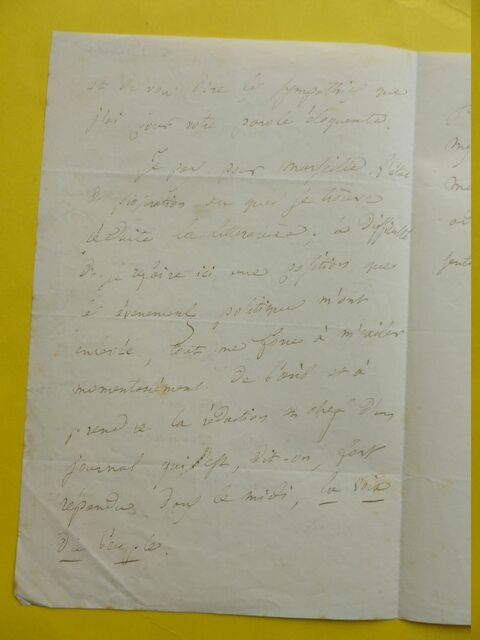 et de vous dire la sympathie que
j'ai pour votre parole éloquente.
Je pars pour marseille. l'état
de
la littérature, la difficulté
de refaire ici une position que
les événements politiques m'ont
enlevée, tout me force à m'exiler
momentanément de Paris et à
prendre la rédaction en chef d'un
journal qui est, dit-on, fort
répandu dans le midi, la Voix
du Peuple.